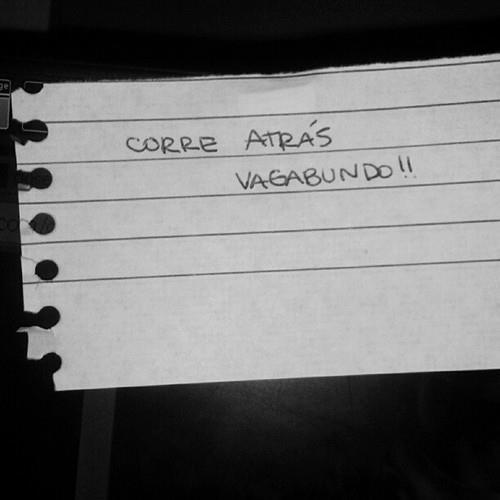 CORRE ATRÁS
VAGABUNDO!!